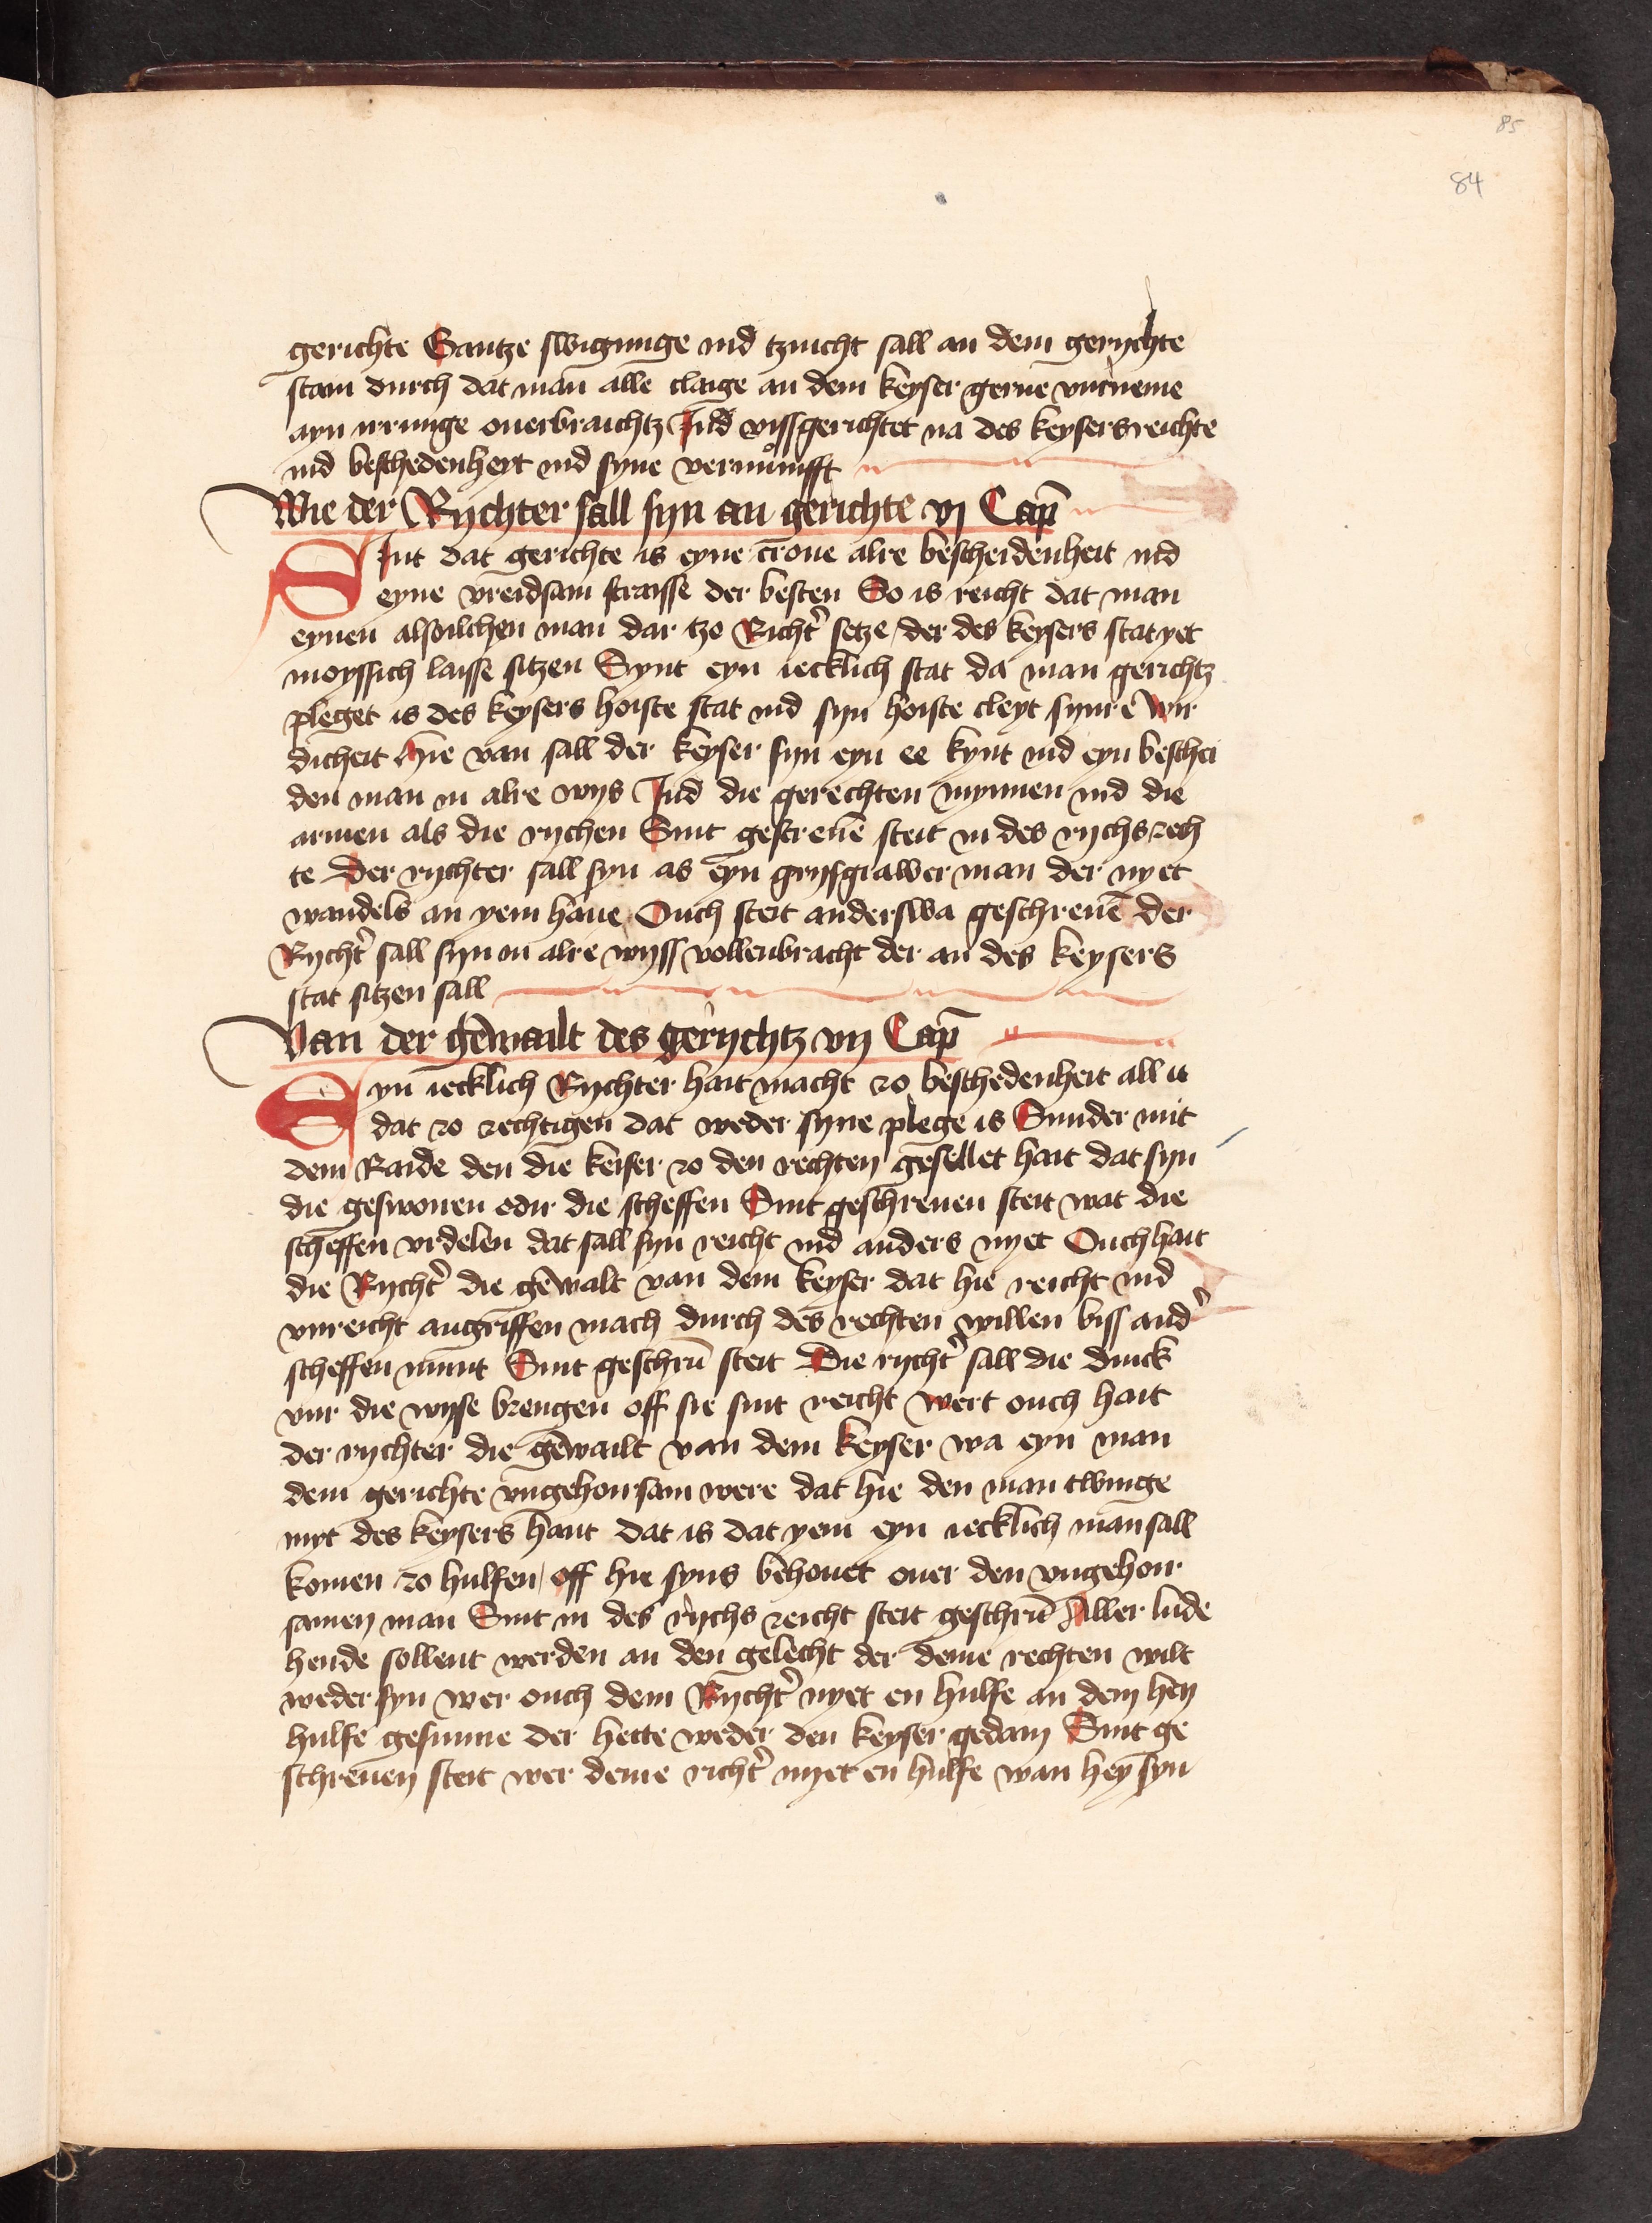 85
84
gerichte Gantze swigunge ind tzuicht sall an dem gerychte
stain durch dat man alle claige an dem keyser gerne vnrneme
ayn irrunge ouerbraichtz Ind vissgerichtet na des keysersreichte
ind beschedenheyt ind syne vernůmfft
Wie der Rychter sall syn an gerichte vj Cap̄
SInt dat gerichte is eyne crone alre bescheidenheit ind
eyne vreidsam straisse der besten So is reicht dat man
eynen alsoilchen man dar tzo Richt᷑ setze / der des keysers stat yet
moyssich laisse sitzen Synt eyn iecklich stat da man gerichtz
pleget is des keysers hoiste stat ind syn hoiste cleyt synre wir
dicheit Hie van sall der keyser syn eyn ee kynt ind eyn beschei
den man in alre wys Ind die gerechten mynnen ind die
armen als die rychen Sint gescreuē steit in des rychs rech
te Der rychter sall syn as eyn grysgrawer man der nyet
wandels an yem haue Ouch steit anderswa geschreuē der
Rycht᷑ sall syn in alre wyss vollenbracht der an des keysers
stat sitzen sall
Van der gewailt des gerychtz vij Cap̄
Eyn iecklich Rychter hait macht zo beschedenheit all it
dat zo rechtigen dat weder syne plege is Sunder mit
dem Raide den die keiser zo den rechten gesellet hait dat syn
die geswonen odir die scheffen Sint geschreuen steit wat die
scheffen vrdelen dat sall syn reicht ind anders nyet Ouch hait
die Rycht᷑ die gewalt van dem keyser dat hie reicht ind
vnreicht angriffen mach durch des rechten willen biss and᷑
scheffen nimt Sint geschrū steit Die rycht᷑ sall die dinck
vur die wyse brengen off sie sint reicht wert ouch hait
der rychter die gewailt van dem keyser wa eyn man
dem gerichte vngehoirsam were dat hie den man twinge
myt des keysers hant dat is dat yem eyn iecklich man sall
komen zo hulfen / off hie syns behouet ouer den vngehoir
samen man Sint in des rychs reicht steit geschrū Aller lude
hende sollent werden an den gelecht der deme rechten wilt
weder syn wer ouch dem Rycht᷑ nyet en hulfe an dem hey
hulfe gesunne der hette weder den keyser gedain Sint ge
schreuen steit wer deme richt᷑ nyet en hulfe wan hey syn